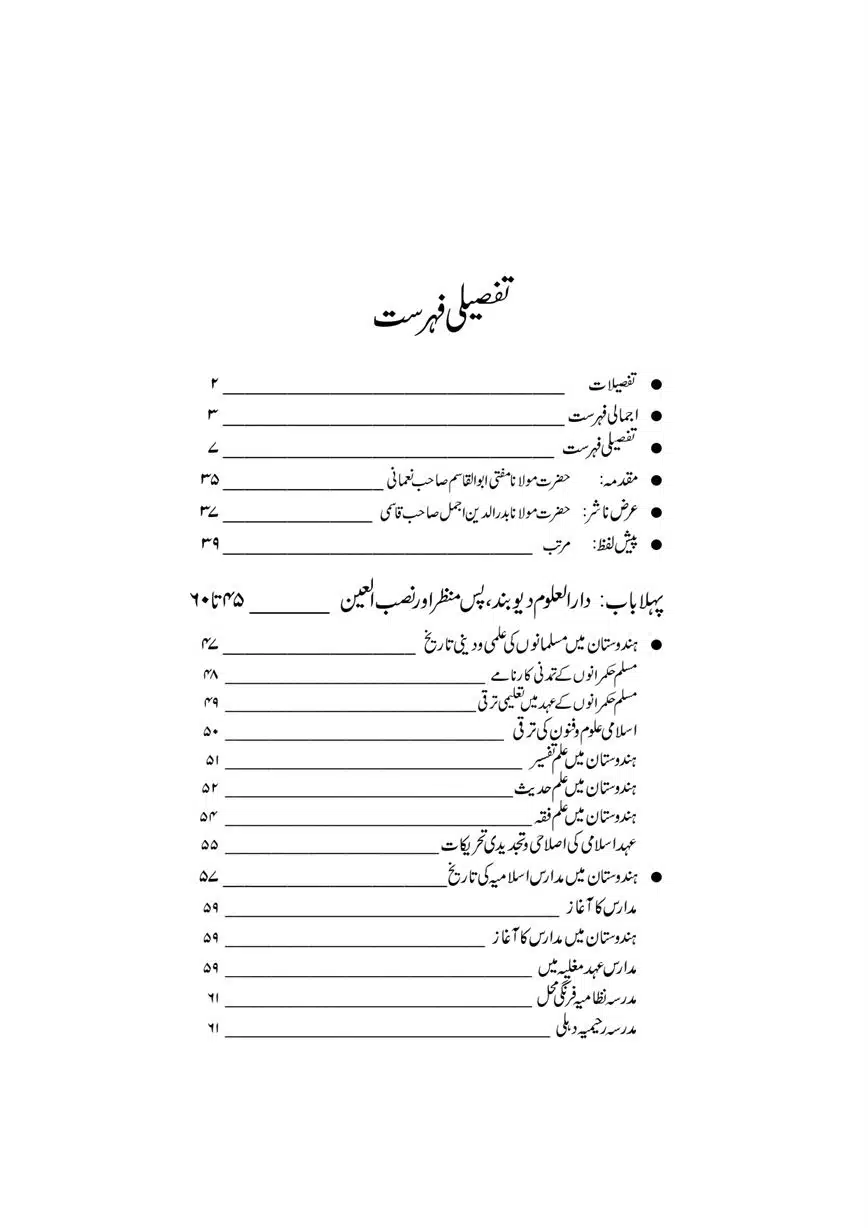 تفصیلی فہرست
● تفصیلات ۲
● اجمالی فہرست ۳
● تفصیلی فہرست ۷
● مقدمہ: حضرت مولانا مفتی ابوالقاسم صاحب نعمانی ۳۵
● عرض ناشر: حضرت مولانا بدرالدین اجمل صاحب قاسمی ۳۷
● پیش لفظ: مرتب ۳۹
پہلا باب: دارالعلوم دیوبند، پس منظر اور نصب العین ۴۵ تا ۶۰
● ہندوستان میں مسلمانوں کی علمی و دینی تاریخ ۴۷
مسلم حکمرانوں کے تمدنی کارنامے ۴۸
مسلم حکمرانوں کے عہد میں تعلیمی ترقی ۴۹
اسلامی علوم و فنون کی ترقی ۵۰
ہندوستان میں علم تفسیر ۵۱
ہندوستان میں علم حدیث ۵۲
ہندوستان میں علم فقہ ۵۴
عہد اسلامی کی اصلاحی و تجدیدی تحریکات ۵۵
● ہندوستان میں مدارس اسلامیہ کی تاریخ ۵۷
مدارس کا آغاز ۵۹
ہندوستان میں مدارس کا آغاز ۵۹
مدارس عہد مغلیہ میں ۵۹
مدرسہ نظامیہ فرنگی محل ۶۱
مدرسہ رحیمیہ دہلی ۶۱